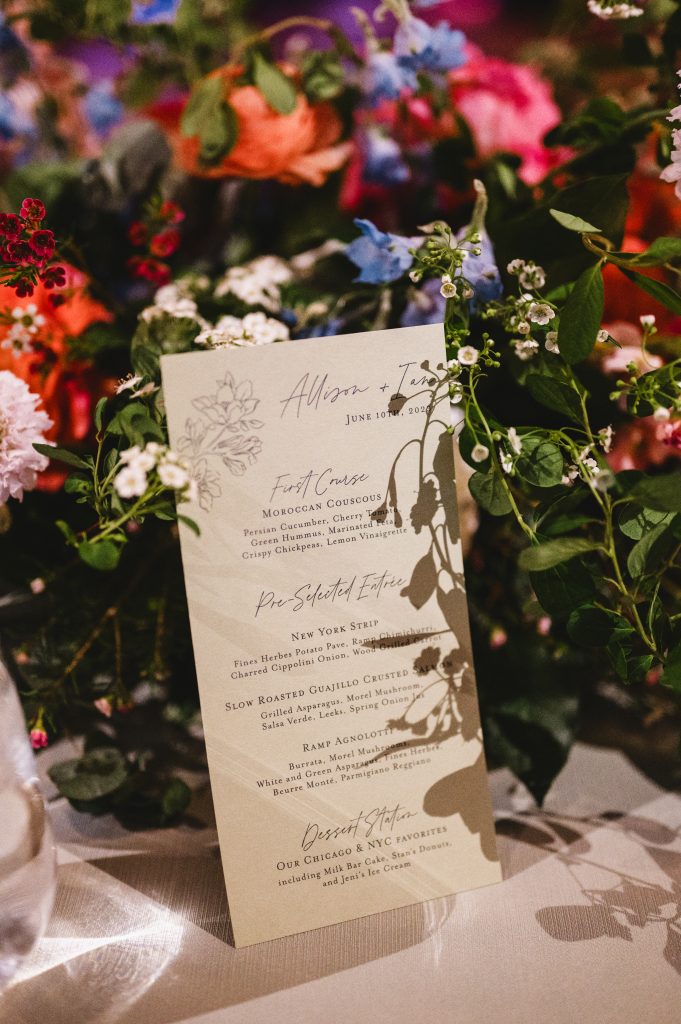 Allison + Ian
June 10th, 202
First Course
Moroccan Couscous
Persian Cucumber, Cherry Tomato,
Green Hummus, Marinated Feta
Crispy Chickpeas, Lemon Vinaigrette
Pre-Selected Entrée
New York Strip
Fines Herbes Potato Pave, Ramp Chimichurri,
Charred Cippolini Onion, Wood Grilled Carrot
Slow Roasted Guajillo Crusted Salmon
Grilled Asparagus, Morel Mushroom,
Salsa Verde, Leeks, Spring Onion Jus
Ramp Agnolotti
Burrata, Morel Mushrooms,
White and Green Asparagus, Fines Herbes,
Beurre Monté, Parmigiano Reggiano
Dessert Station
Our Chicago & NYC favorites
including Milk Bar Cake, Stan's Donuts,
and Jeni's Ice Cream